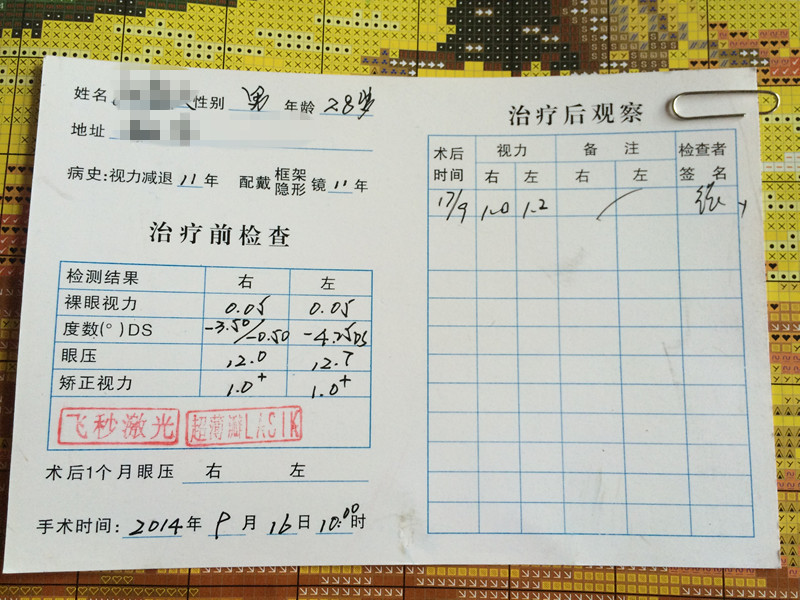 姓名 性别 男 年龄 28岁
地址
病史:视力减退 11 年 配戴 框架 隐形 镜 11 年
治疗前检查
检测结果 右 左
裸眼视力 0.05 0.05
度数(°)DS -3.50/-0.50 -4.25DS
眼压 12.0 12.7
矫正视力 1.0+ 1.0+
飞秒激光 超薄瓣LASIK
术后1个月眼压 右 左
手术时间: 2014 年 9 月 16 日 10:00 时
治疗后观察
术后时间 视力 备注 检查者签名
右 左 右 左
17/9 1.0 1.2